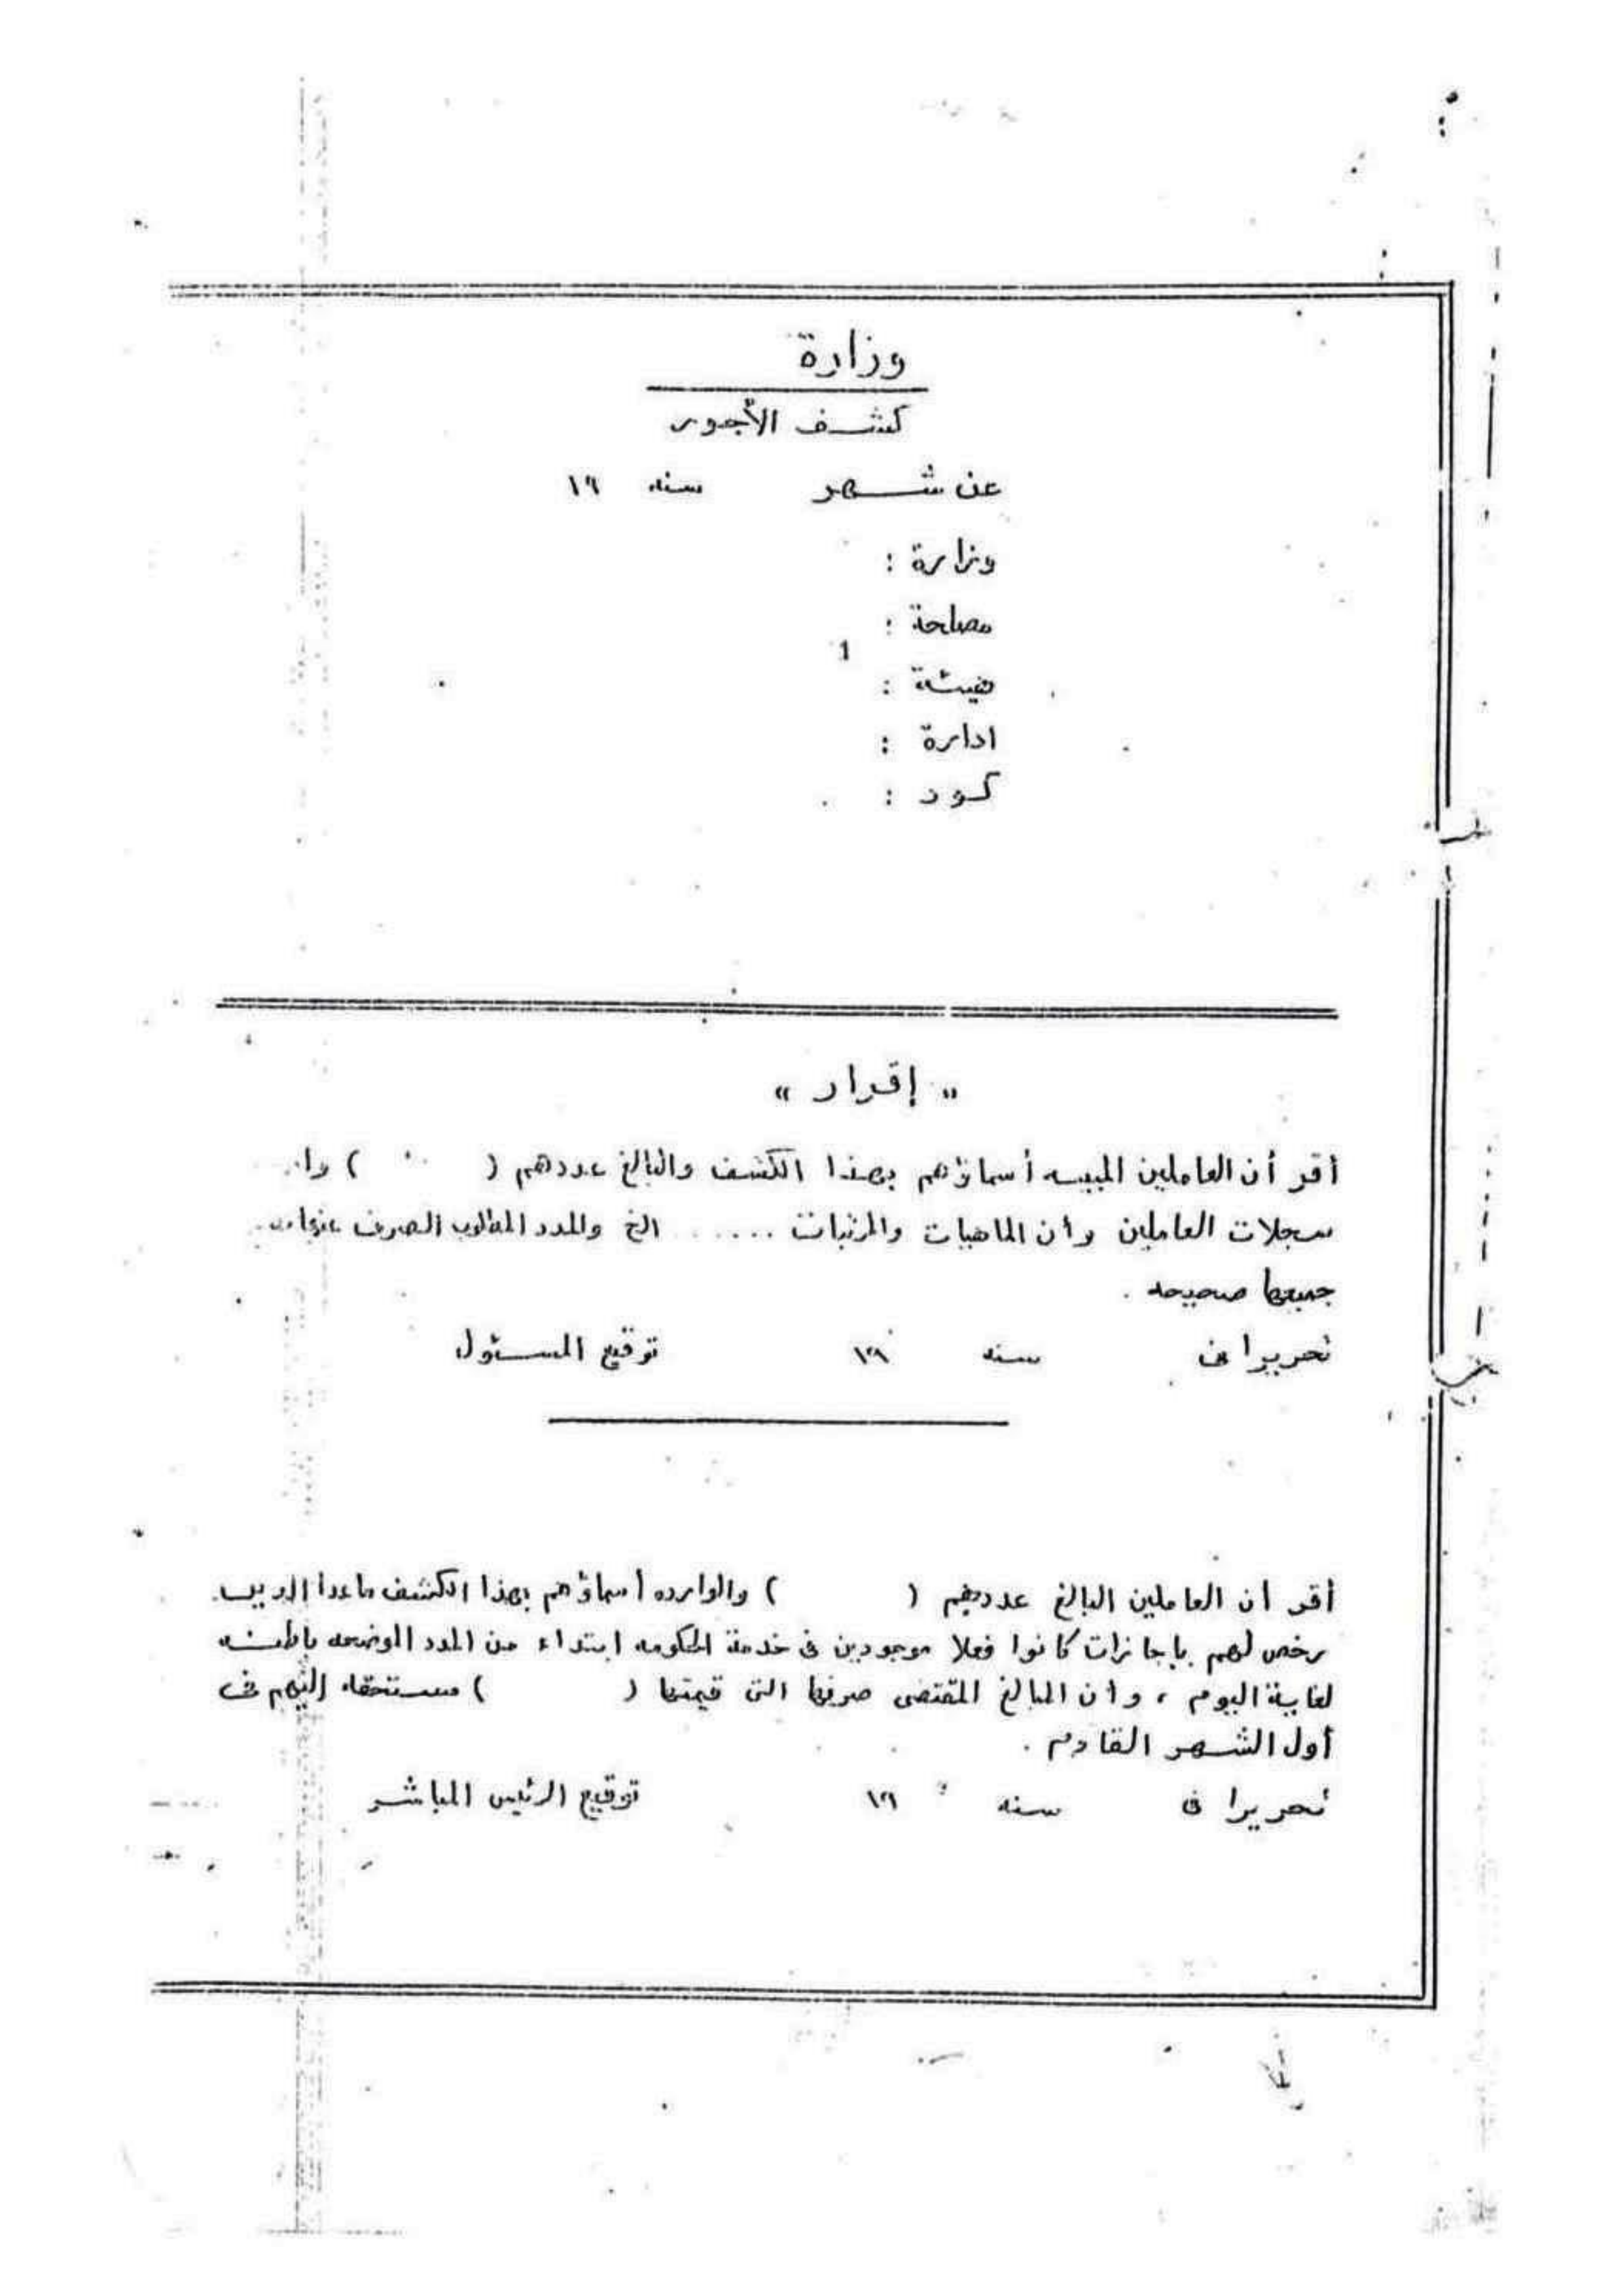 وزارة
كشف الأجور
عن شهر سنه ١٩
وزارة :
مصلحة :
هيئة :
ادارة :
كود :
" إقرار "
أقر أن العاملين المبينه أسماؤهم بهذا الكشف والبالغ عددهم ( )
سجلات العاملين وأن الماهيات والمرتبات ...... الخ والمدد المطلوب الصرف عنها
جميعها صحيحه .
تحريرا فى سنه ١٩ توقيع المسئول
أقر أن العاملين البالغ عددهم ( ) والوارده أسماؤهم بهذا الكشف ماعدا الذين
رخص لهم بإجازات كانوا فعلا موجودين فى خدمة الحكومه ابتداء من المدد الموضحه باطنه
لغاية اليوم ، وأن المبالغ المقتضى صرفها التى قيمتها ( ) مستحقه إليهم فى
أول الشهر القادم .
تحريرا فى سنه ١٩ توقيع الرئيس المباشر